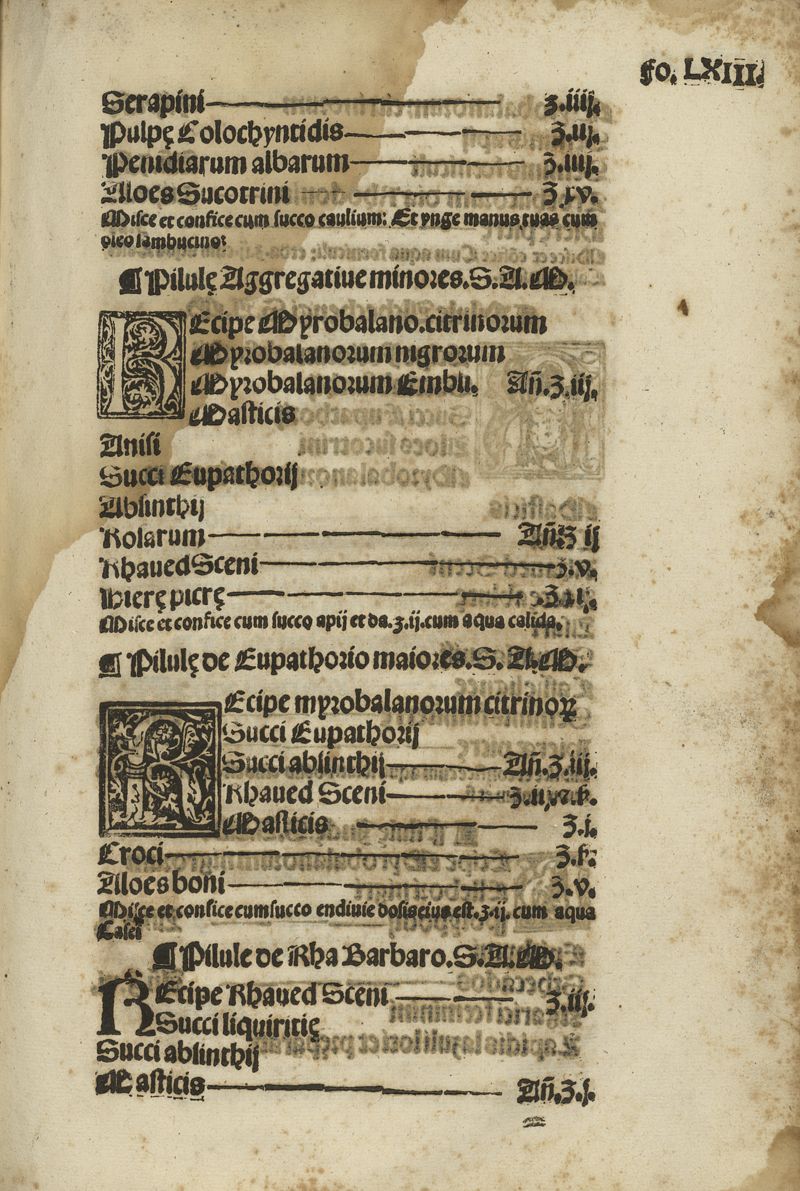 fo. LXIII.
Serapini ʒ.iiij.
Pulpę Colochyntidis ʒ.ij.
Penidiarum albarum ʒ.iiij.
Aloes Sucotrini ʒ.xv.
Misce et confice cum succo caulium: Et ynge manus tuas cum
oleo sambucino:
¶ Pilulę Aggregatiue minores. S. A. M.
REcipe Myrobalano. citrinorum
Myrobalanorum nigrorum
Myrobalanorum Embli. Añ. ʒ.iij.
Masticis
Anisi
Succi Eupathorij
Absinthij
Rosarum Añ ʒ ij
Rhaued Sceni ʒ.v.
Hierę picrę
Misce et confice cum succo apij et da. ʒ.ij. cum aqua calida.
¶ Pilulę de Eupathorio maiores. S. A. M.
REcipe myrobalanorum citrinoꝝ
Succi Eupathorij
Succi absinthij Añ. ʒ.iij.
Rhaued Sceni
Masticis ʒ.j.
Croci ʒ.ß.
Aloes boni ʒ.v.
Misce et confice cum succo endiuie dosis eius est. ʒ.ij. cum aqua
Casei
¶ Pilule de Rha Barbaro. S. A. M.
REcipe Rhaued Sceni ʒ.iij.
Succi liquiritię
Succi absinthij
Masticis Añ. ʒ.j.